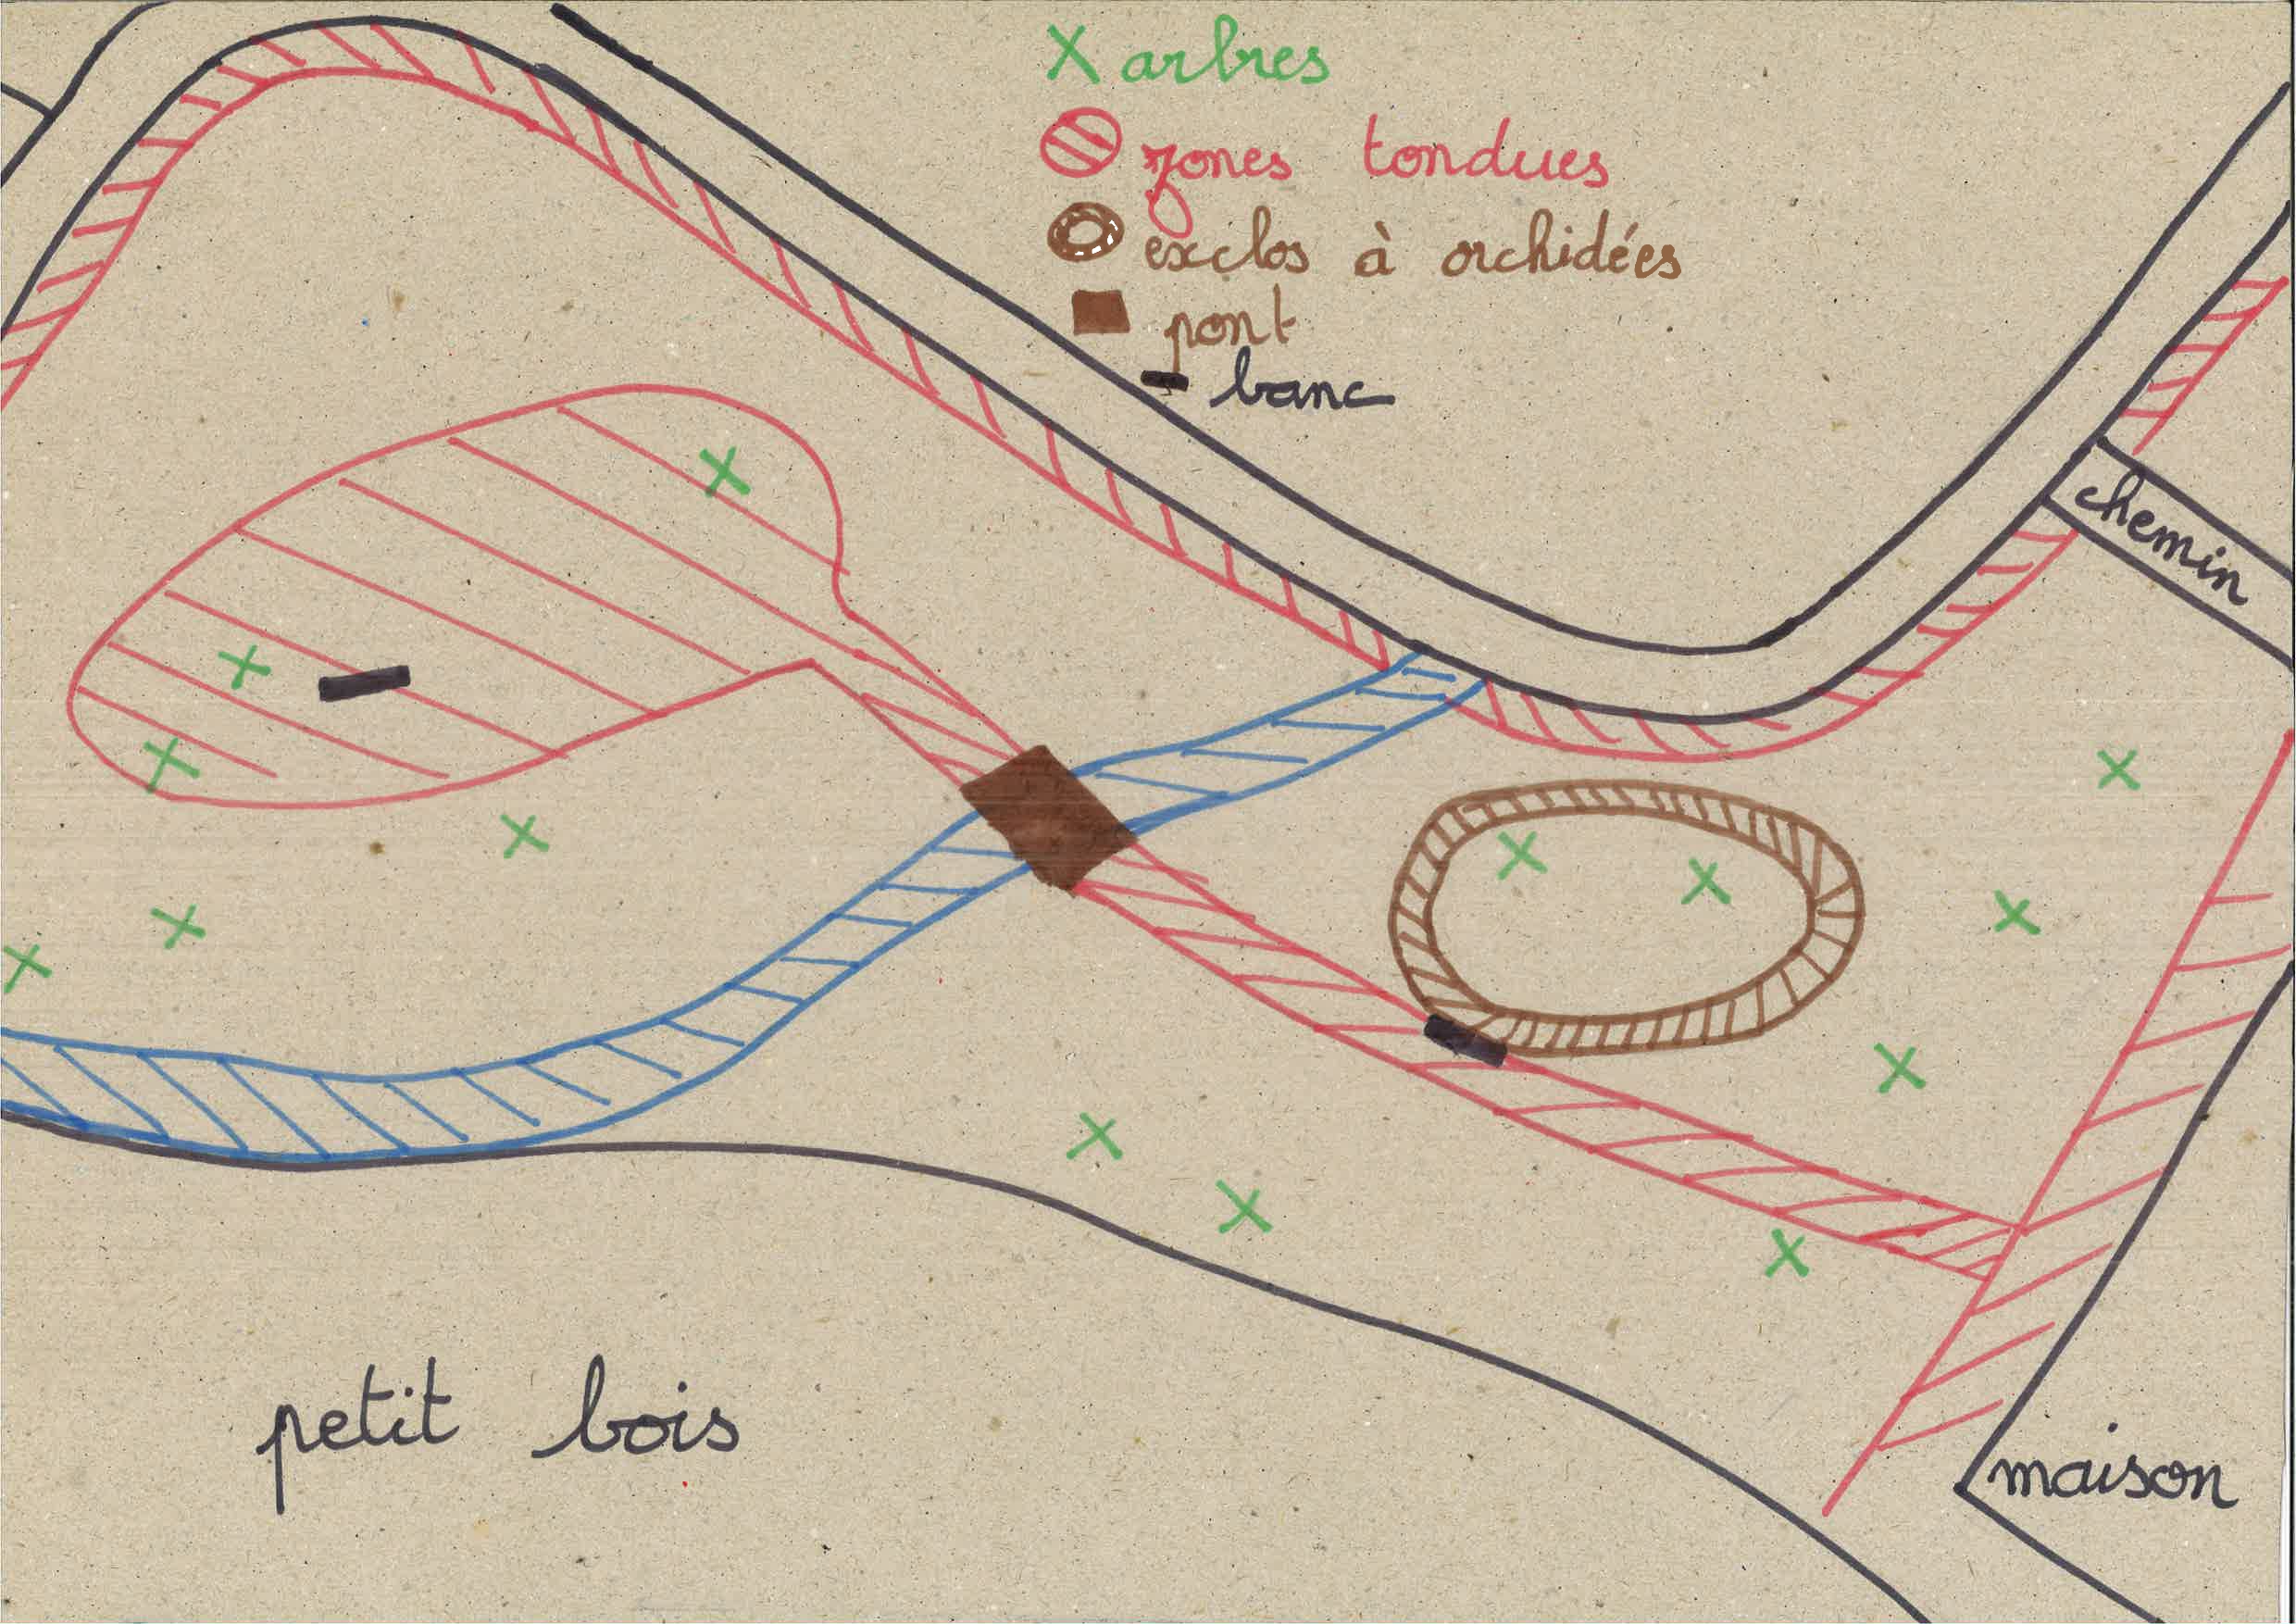 X arbres
zones tondues
exclos à orchidées
pont
banc
chemin
petit bois
maison